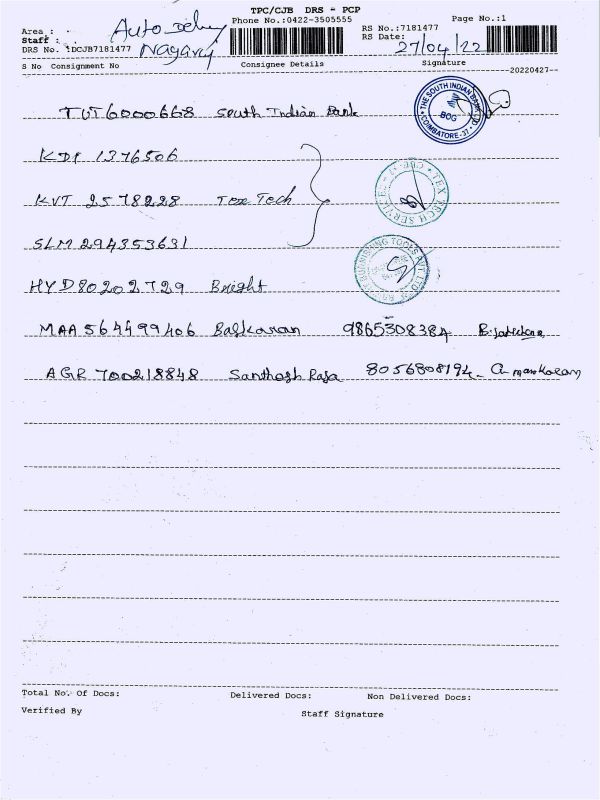 TPC/CJB DRS - PCP
Phone No.:0422-3505555
Page No.:1
Area :
Staff :
DRS No. :DCJB7181477
Auto Delvy
RS No.:7181477
RS Date:
27/04/22
S No Consignment No
Consignee Details
Signature
20220427
TUT6000668 South Indian Bank
THE SOUTH INDIAN BANK
BOG
COIMBATORE-37
KDI 1376506
KVT 2578228 Tex Tech
TEX TECH SERVICES
SLM 294353631
HYD80202729 Bright
TOOLS PVT. LTD
MAA 564499406 Baskaran 9865308384
AGR 700218848 Santhosh Raja 8056808194
Total No. Of Docs:
Delivered Docs:
Non Delivered Docs:
Verified By
Staff Signature